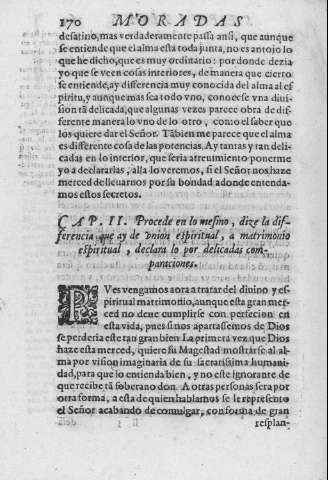 170 MORADAS
desatino, mas verdaderamente passa ansi, que aunque
se entiende que el alma esta toda junta, no es antojo lo
que he dicho, que es muy ordinario: por donde dezia
yo que se veen cosas interiores, de manera que cierto
se entiende, ay differencia muy conocida del alma al es
piritu, y aunque mas sea todo vno, conocese vna diui-
sion tã delicada, que algunas vezes parece obra de dif-
ferente manera lo vno de lo otro, como el saber que
los quiere dar el Señor. Tãbien me parece que el alma
es differente cosa de las potencias. Ay tantas y tan deli-
cadas en lo interior, que seria atreuimiento ponerme
yo a declararlas, alla lo veremos, si el Señor nos haze
merced de lleuarnos por su bondad adonde entenda-
mos estos secretos.
CAP. II. Procede en lo mesmo, dize la dif-
ferencia que ay de vnion espiritual, a matrimonio
espiritual, declara lo por delicadas com-
paraciones.
PVes vengamos aora a tratar del diuino y es-
piritual matrimonio, aunque esta gran mer-
ced no deue cumplirse con perfecion en
esta vida, pues si nos apartassemos de Dios
se perderia este tan gran bien La primera vez que Dios
haze esta merced, quiere su Magestad mostrarse al al-
ma por vision imaginaria de su sacratissima humani-
dad, para que lo entienda bien, y no este ignorante de
que recibe tã soberano don. A otras personas sera por
otra forma, a esta de quien hablamos se le represento
el Señor acabando de comulgar, con forma de gran
resplan-